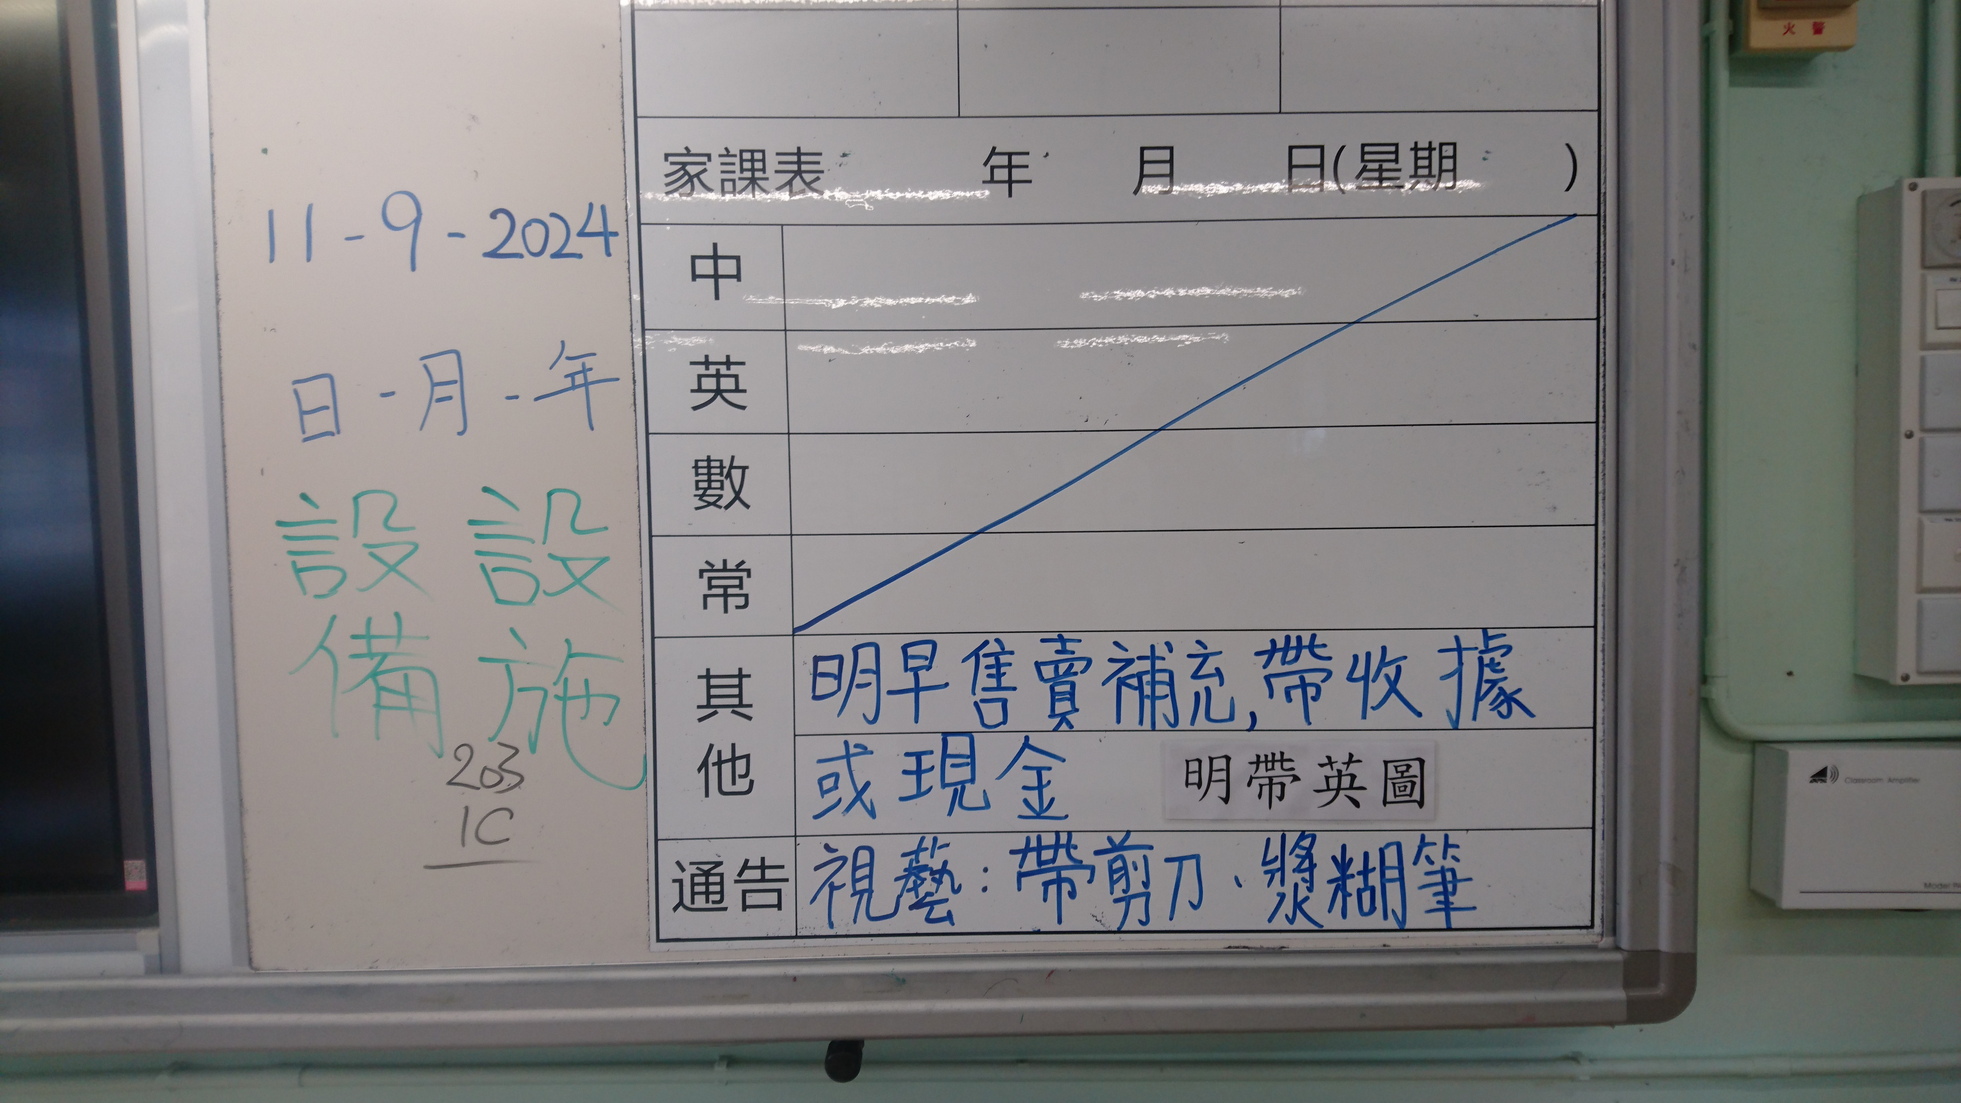 火警
家課表 年 月 日(星期 )
11-9-2024
日-月-年
設備
設施
203
1C
中
英
數
常
其他
明早售賣補充,帶收據
或現金 明帶英圖
通告
視藝:帶剪刀、漿糊筆
Classroom Amplifier